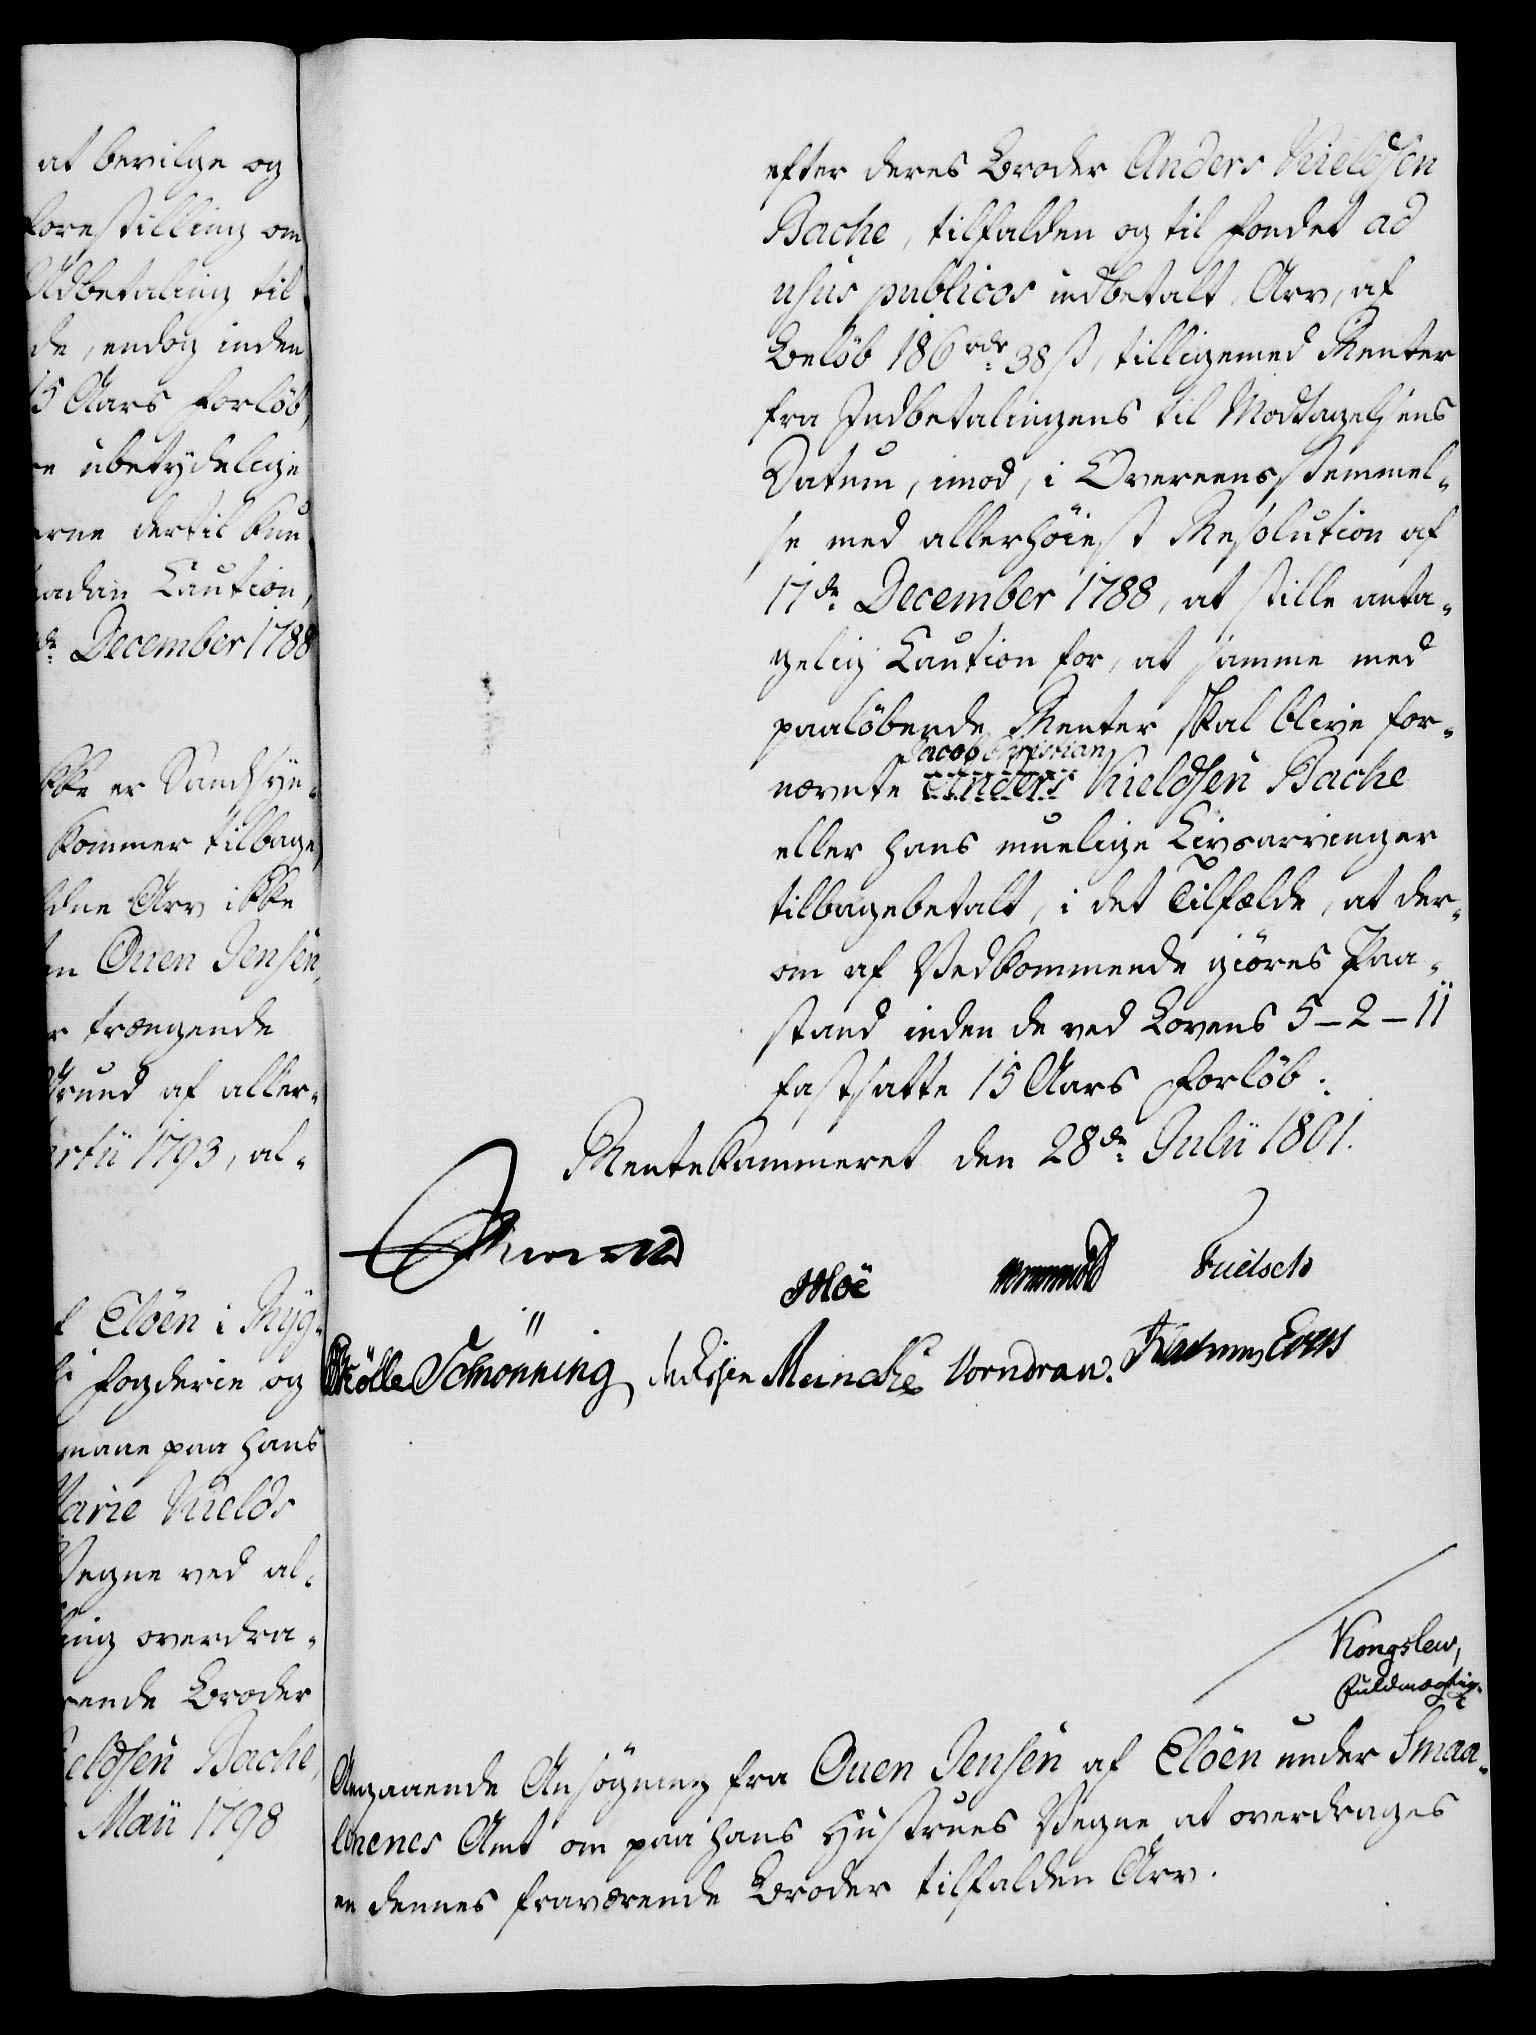 at bevilge og
forestilling om
Udbetaling til
de, endog inden
15 Aars Forløb,
re ubetydelige
erne dertil kun
saadan Caution,
de December 1788
ikke er Sandsyn-
kommer tilbage,
ldne Arv ikke
en Ouen Jensen,
r trængende
Grund af aller-
Martii 1793, al-
f Eløen i Ryg-
Fogderie og
maae paa hans
Marie Kields
Vegne ved al-
ling overdra-
rende Broder
ieldsen Bache,
Maii 1798
efter deres Broder Anders Kieldsen
Bache, tilfalden og til Fondet ad
usus publicos indbetalt Arv, af
Beløb 186 rdr 38 ß, tilligemed Renter
fra Indbetalingens til Modtagelsens
Datum, imod, i Overeensstemmel-
se med allerhøiest Resolution af
17de December 1788, at stille anta-
gelig Caution for, at samme med
paaløbende Renter skal blive for-
Jacob Christian
nævnte Anders Kieldsen Bache
eller hans muelige Livsarvinger
tilbagebetalt, i det Tilfælde, at der-
om af Vedkommende giøres Paa-
stand inden de ved Lovens 5-2-11
fastsatte 15 Aars Forløb.
Rentekammeret den 28de Julii 1801.
Moe
Schønning Meincke Vorndran.
Kongslew,
Fuldmægtig.
Angaaende Ansøgning fra Ouen Jensen af Eløen under Smaa-
lenenes Amt om paa hans Hustrues Vegne at overdrages
en dennes fraværende Broder tilfalden Arv.